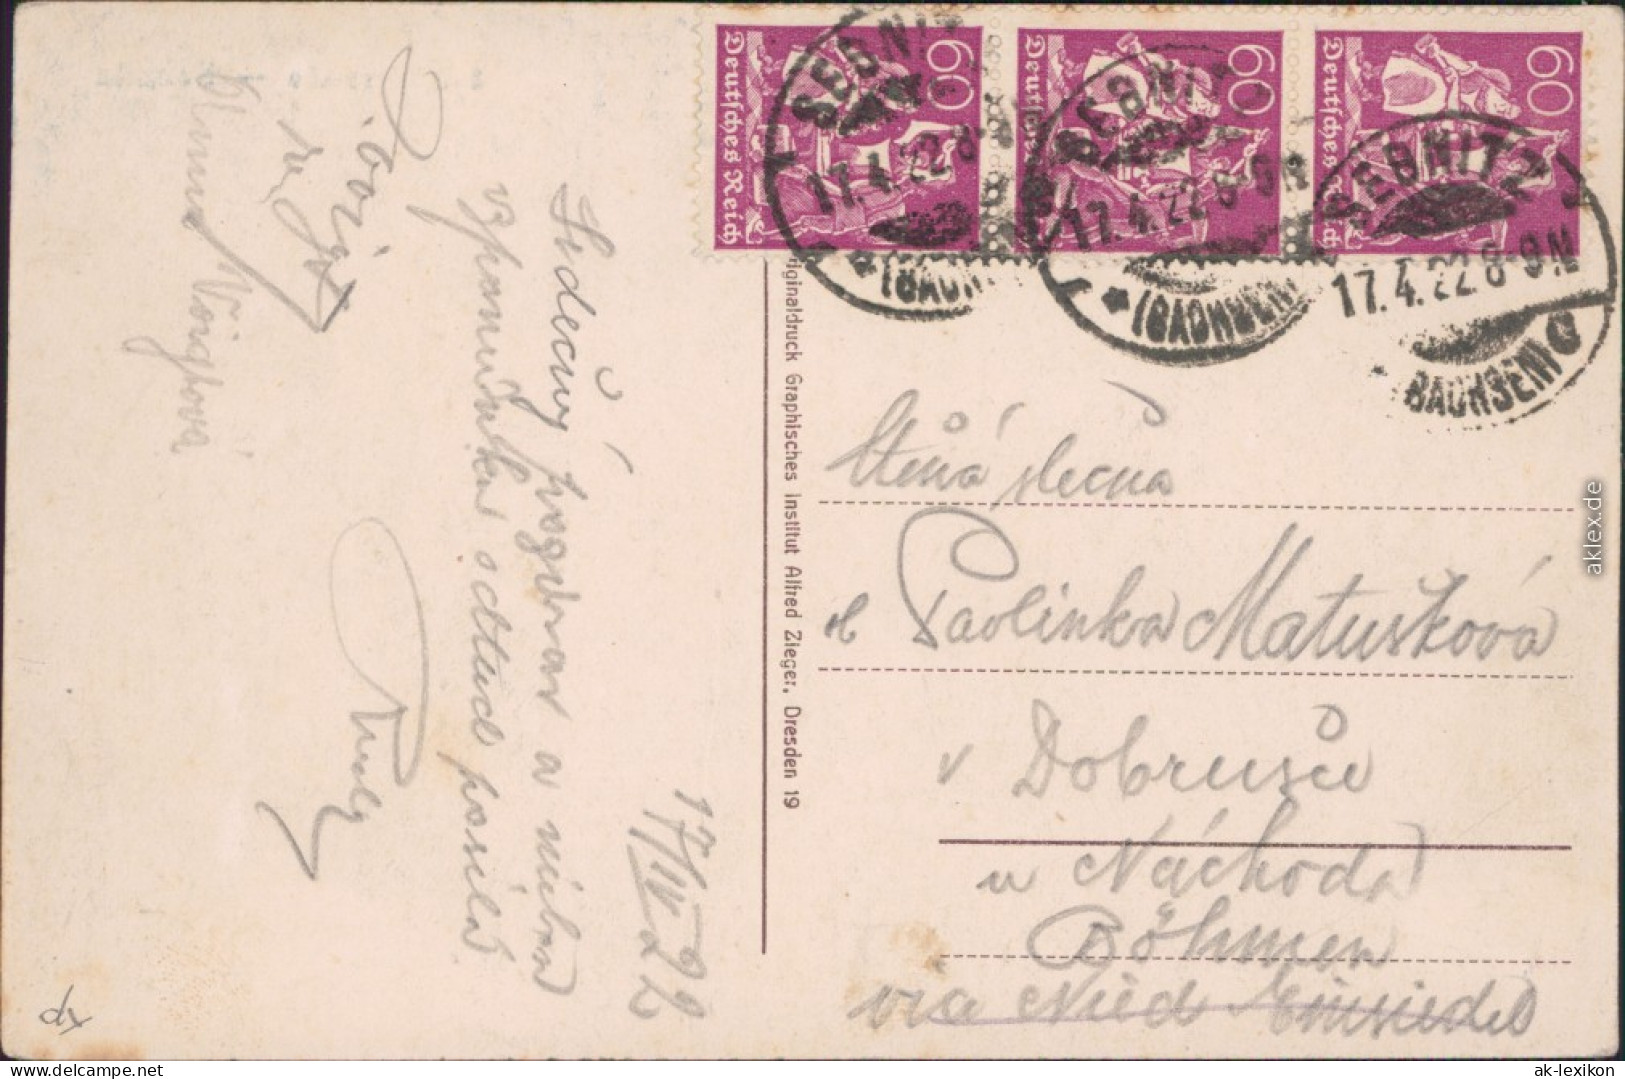 60 60 60
Deutsches Reich Deutsches Reich Deutsches Reich
SEBNITZ SEBNITZ SEBNITZ
17.4.22.8-9N 17.4.22.8-9N 17.4.22.8-9N
(SACHSEN) (SACHSEN) (SACHSEN)
Originaldruck Graphisches Institut Alfred Zieger, Dresden 19
17/IV 22
Srdečný pozdrav a
vzpomínku odtud posílá
Ctěná slečna
sl Pavlinka Matušková
v Dobrušce
u Náchoda
Böhmen
via Nied Einsiedel
dx
aklex.de
www.delcampe.net
ak-lexikon